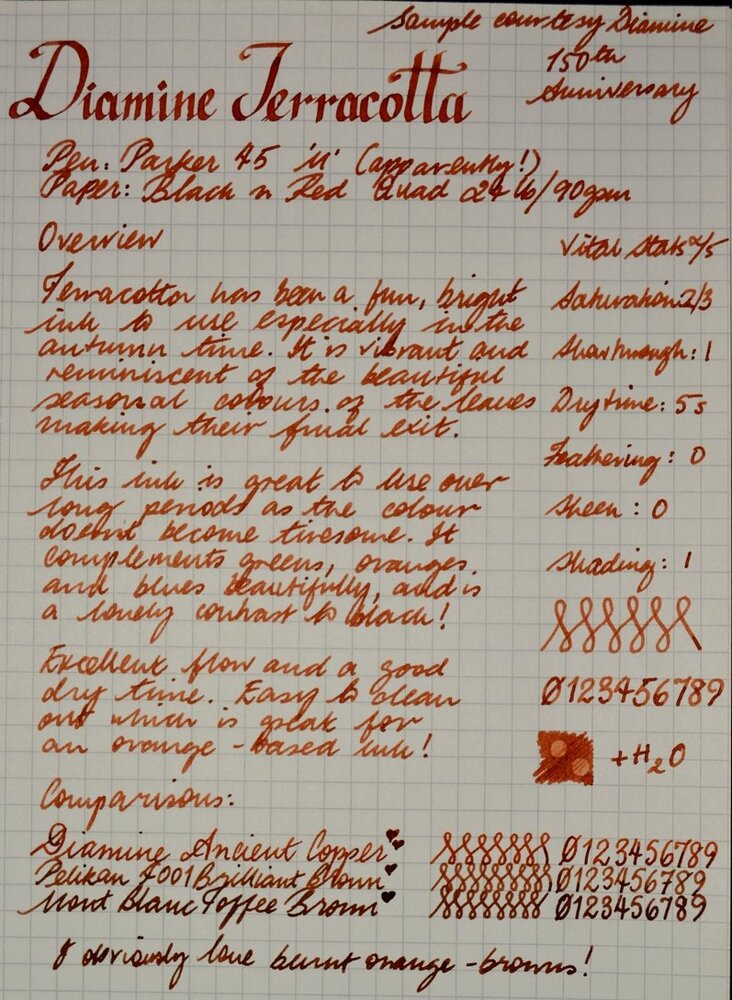 Sample courtesy Diamine
150th
Anniversary
Diamine Terracotta
Pen: Parker 45 'M' (apparently!)
Paper: Black n Red Quad 24 lb/90gsm
Overview
Terracotta has been a fun, bright
ink to use especially in the
autumn time. It is vibrant and
reminiscent of the beautiful
seasonal colours of the leaves
making their final exit.
This ink is great to use over
long periods as the colour
doesn't become tiresome. It
complements greens, oranges
and blues beautifully, and is
a lovely contrast to black!
Excellent flow and a good
dry time. Easy to clean
out which is great for
an orange-based ink!
Vital Stats x/5
Saturation: 2/3
Showthrough: 1
Dry time: 5s
Feathering: 0
Sheen: 0
Shading: 1
Ø123456789
+H₂O
Comparisons:
Diamine Ancient Copper♥ Ø123456789
Pelikan 4001 Brilliant Brown♥ Ø123456789
Mont Blanc Toffee Brown♥ Ø123456789
I obviously love burnt orange-browns!